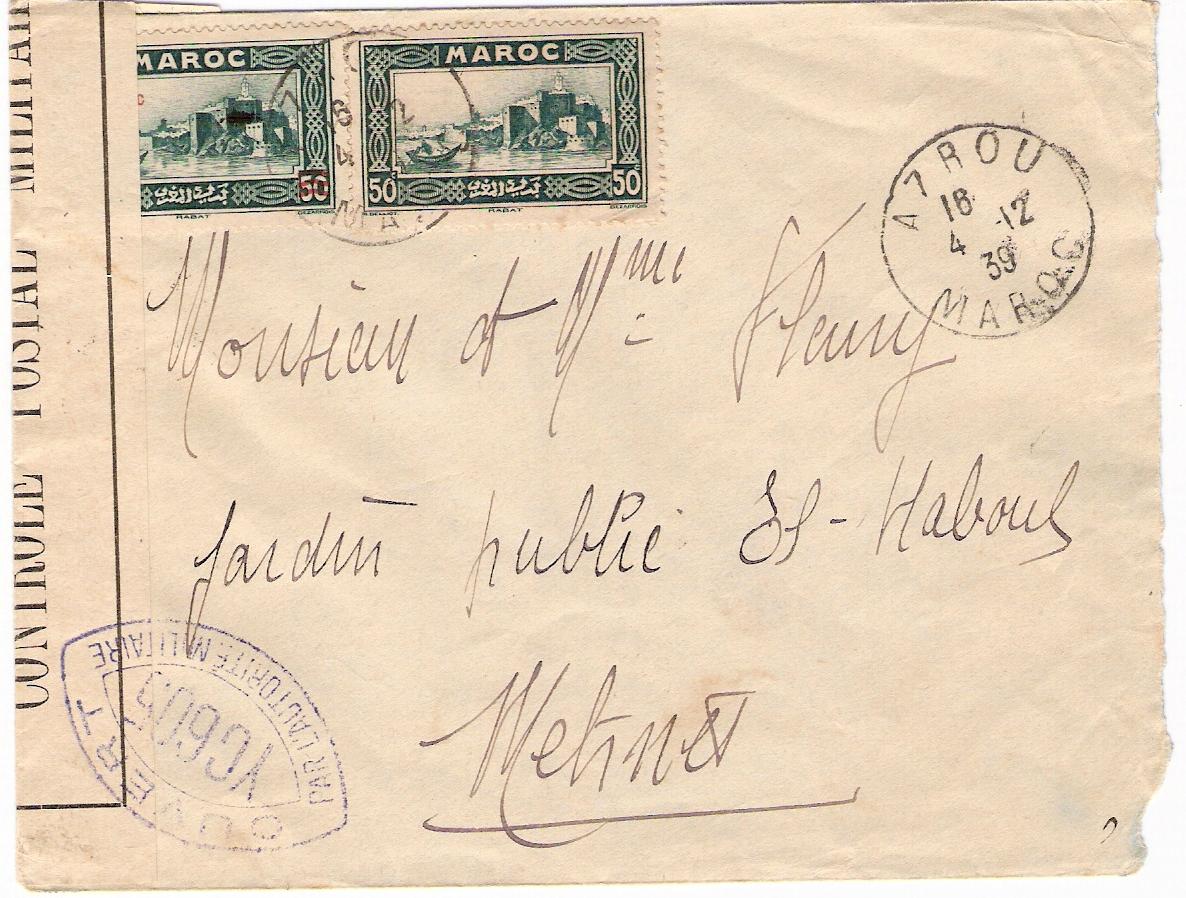 CONTROLE POSTAL MILITAIR
MAROC
50
RABAT
MAROC
50c
50
RABAT
AZROU
16
4 -12
39
MAROC
Monsieur et Mme Fleury
Jardin public El-Haboul
Meknès
OUVERT
PAR L'AUTORITÉ MILITAIRE